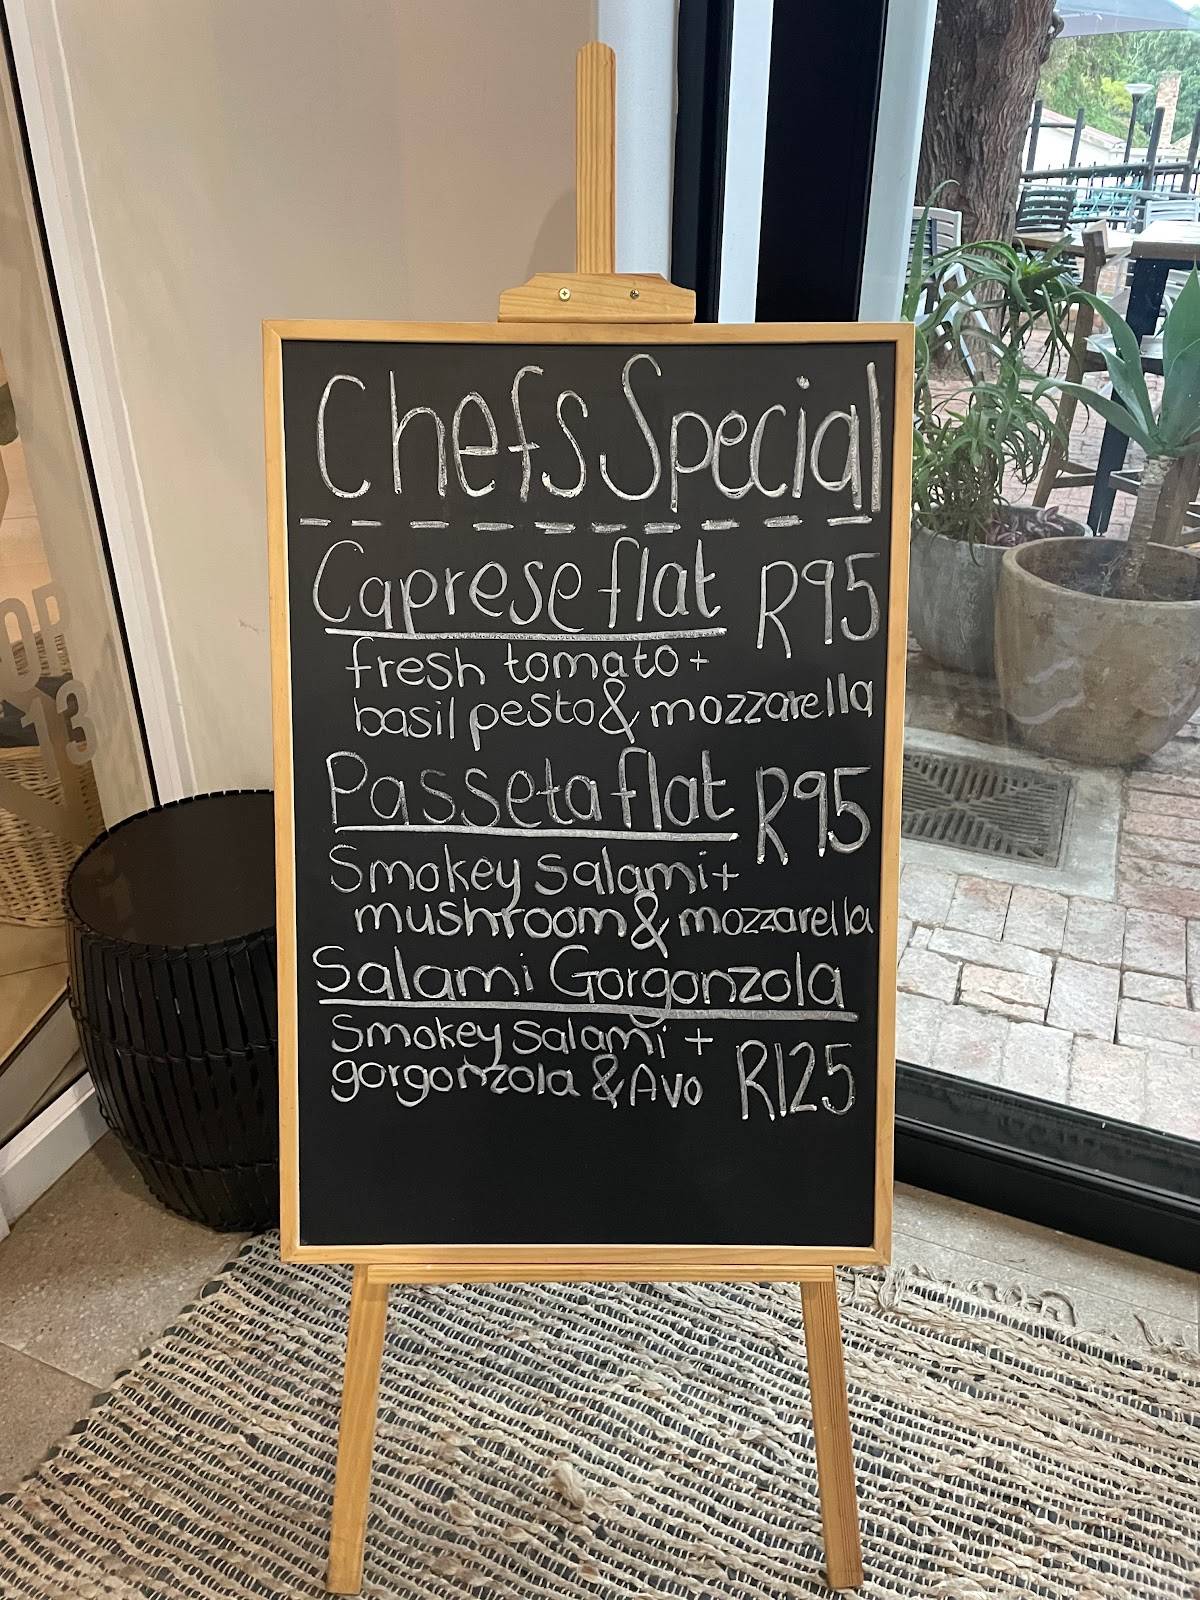 Chefs Special
Caprese flat R95
fresh tomato +
basil pesto & mozzarella
Passeta flat R95
Smokey Salami +
mushroom & mozzarella
Salami Gorgonzola
Smokey Salami +
gorgonzola & Avo R125
13